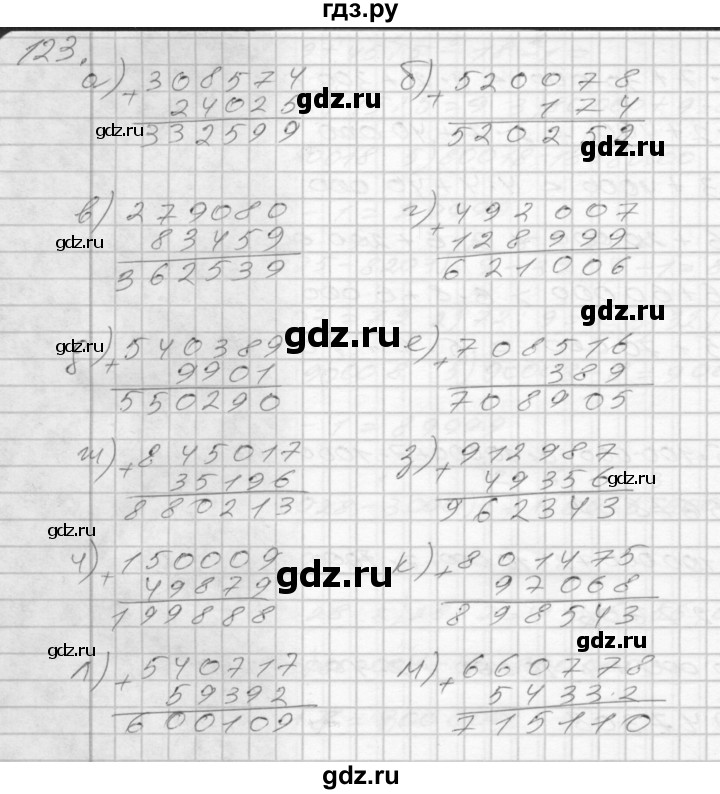 гдз.ру
123.
а) + 308574
24025
332599
gdz.ru
gdz.ru
б) + 520078
174
520252
gdz.ru
в) 279080
83459
362539
gdz.ru
г) + 492007
128999
621006
gdz.ru
д) + 540389
9901
550290
gdz.ru
gdz.ru
е) + 708516
389
708905
ж) + 845017
35196
880213
gdz.ru
з) + 912987
49356
962343
gdz.ru
и) + 150009
49879
199888
gdz.ru
к) + 801475
97068
898543
gdz.ru
л) + 540717
59392
600109
gdz.ru
м) + 660778
54332
715110
gdz.ru